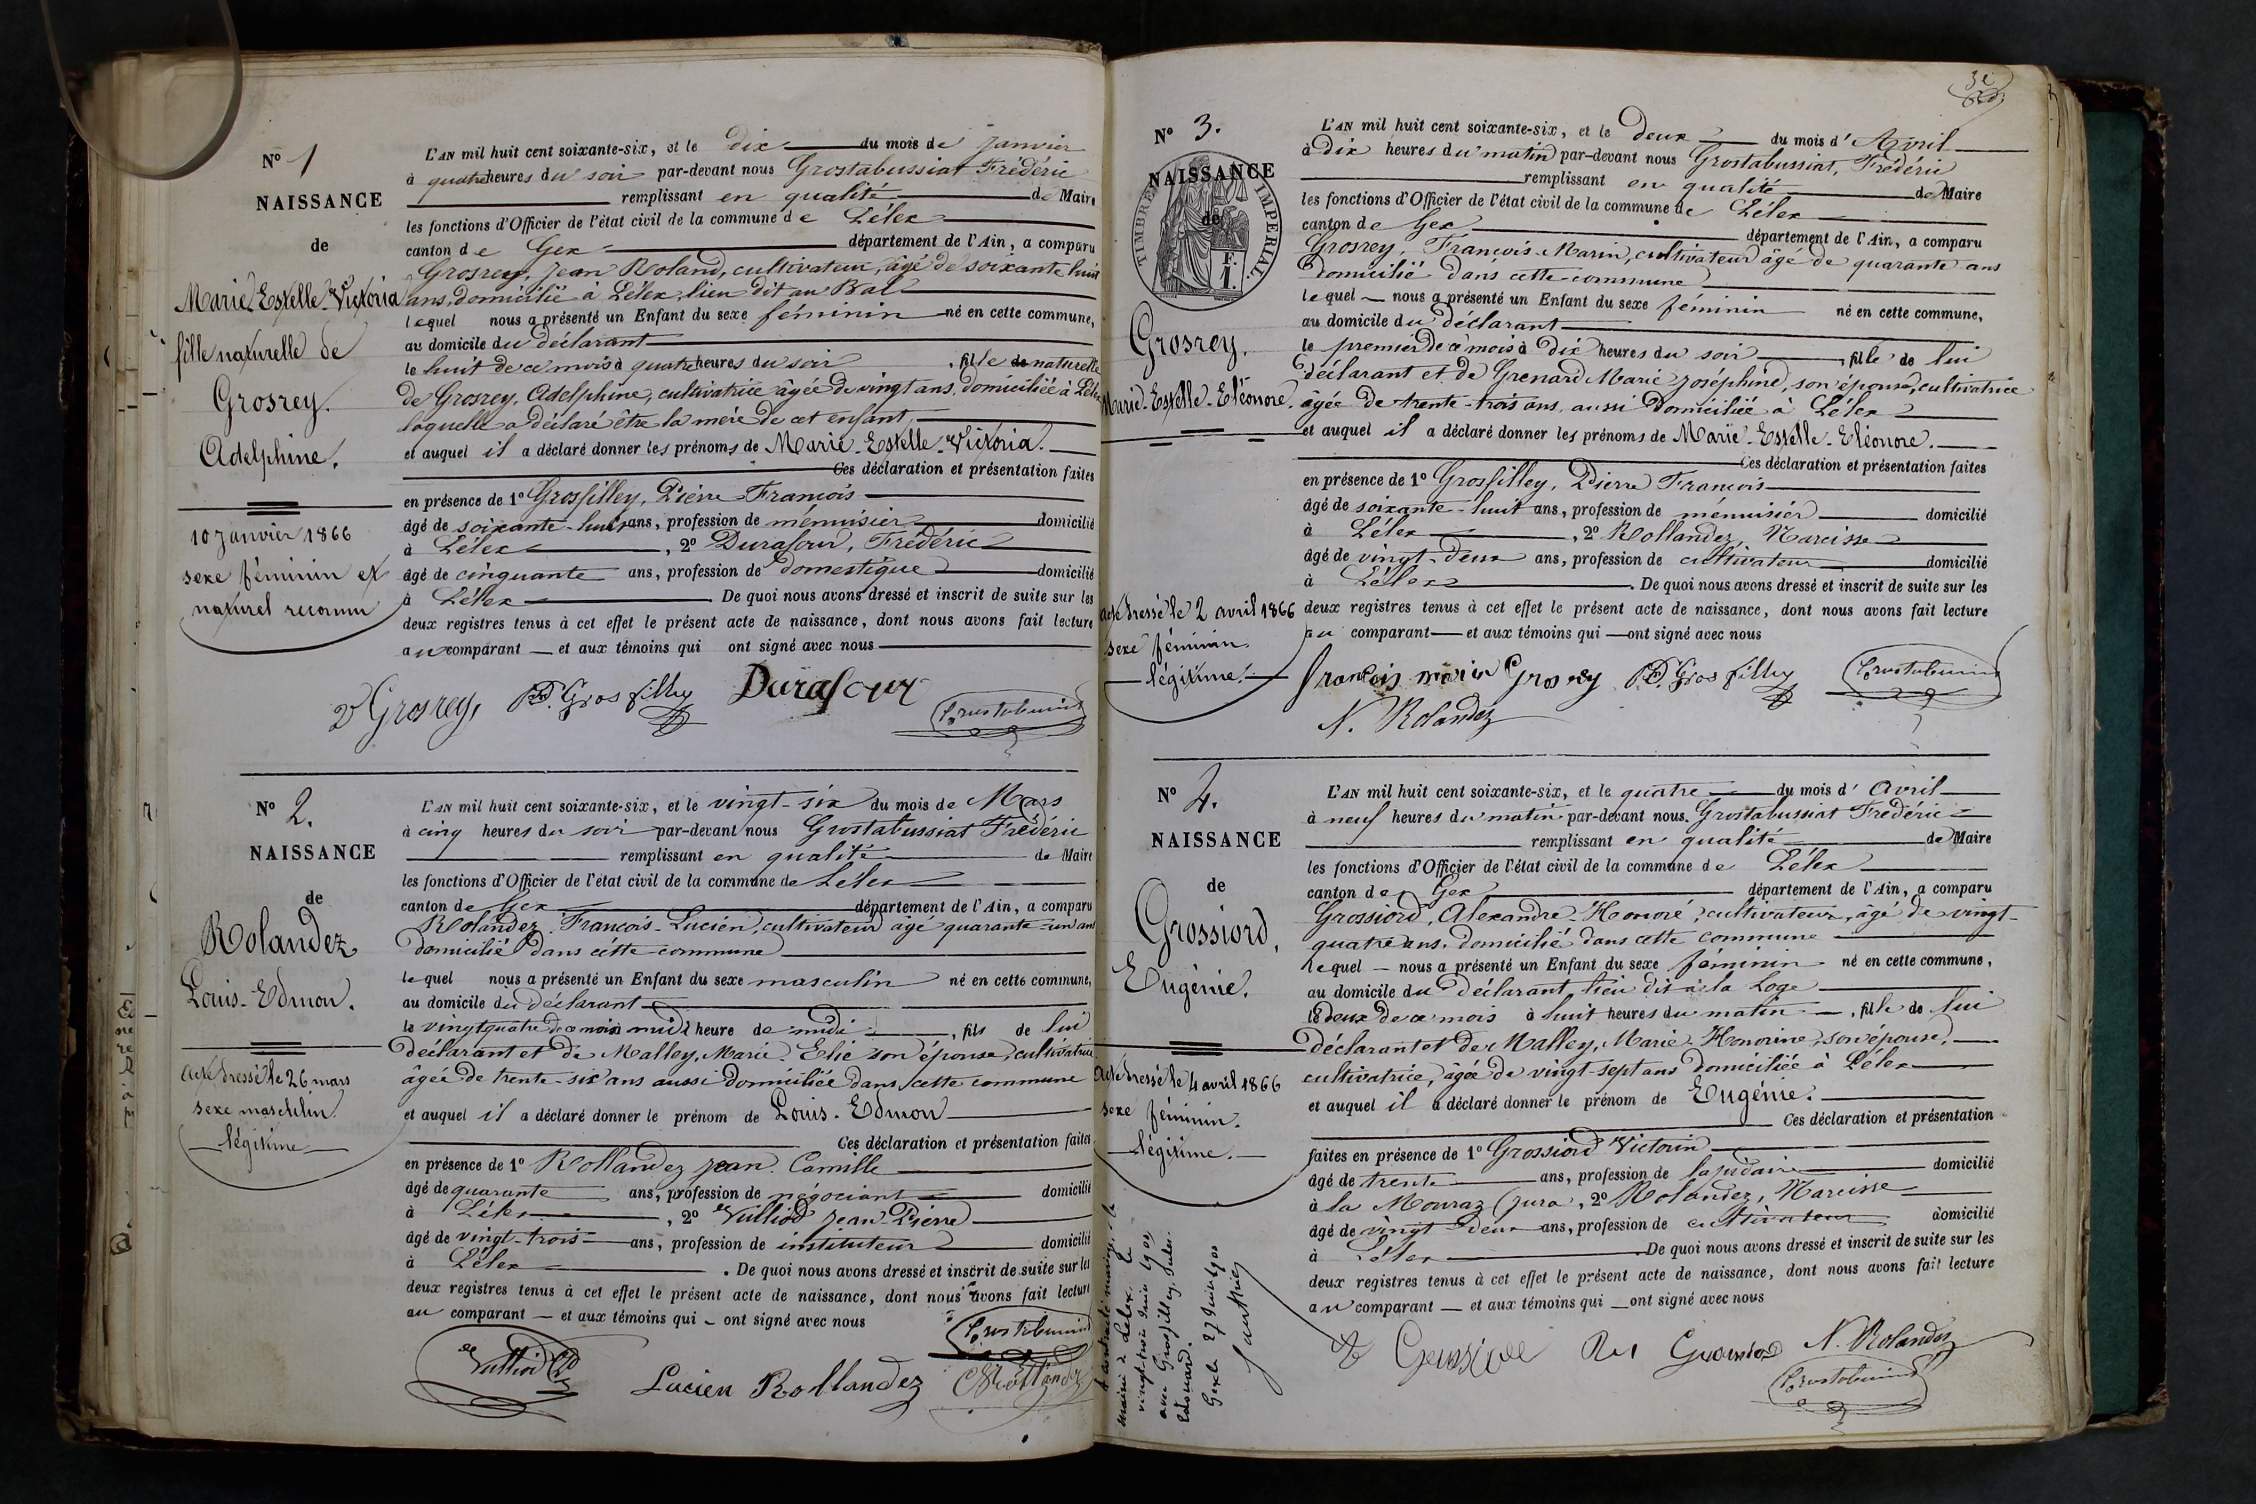 N° 1
NAISSANCE
de
Marie-Estelle-Victoria
fille naturelle de
Grosrey.
Adelphine.
10 Janvier 1866
sexe féminin et
naturel reconnu
L'AN mil huit cent soixante-six, et le dix du mois de Janvier
à quatre heures du soir par-devant nous Grostabussiat Frédéric
remplissant en qualité de Maire
les fonctions d'Officier de l'état civil de la commune de Lélex
canton de Gex département de l'Ain, a comparu
Grosrey, Jean Roland, cultivateur, âgé de soixante huit
ans, domicilié à Lélex, lieu dit au Bal
lequel nous a présenté un Enfant du sexe féminin né en cette commune,
au domicile du déclarant
le huit de ce mois à quatre heures du soir, fille de naturelle
de Grosrey, Adelphine, cultivatrice âgée de vingt ans, domiciliée à Lélex
laquelle a déclaré être la mère de cet enfant
et auquel il a déclaré donner les prénoms de Marie-Estelle-Victoria.
Ces déclaration et présentation faites
en présence de 1° Grosfilley, Pierre François
âgé de soixante-huit ans, profession de menuisier domicilié
à Lélex, 2° Durafour, Frédéric
âgé de cinquante ans, profession de domestique domicilié
à Lélex. De quoi nous avons dressé et inscrit de suite sur les
deux registres tenus à cet effet le présent acte de naissance, dont nous avons fait lecture
au comparant et aux témoins qui ont signé avec nous
Grosrey, P.F. Grosfilley Durafour
Grostabussiat
N° 2.
NAISSANCE
de
Rolandez
Louis-Edmon.
Acte dressé le 26 mars
sexe masculin.
légitime
L'AN mil huit cent soixante-six, et le vingt-six du mois de Mars
à cinq heures du soir par-devant nous Grostabussiat Frédéric
remplissant en qualité de Maire
les fonctions d'Officier de l'état civil de la commune de Lélex
canton de Gex département de l'Ain, a comparu
Rolandez, François-Lucien, cultivateur âgé quarante-un ans
domicilié dans cette commune
lequel nous a présenté un Enfant du sexe masculin né en cette commune,
au domicile du déclarant
le vingt quatre de ce mois à midi heure de midi, fils de lui
déclarant et de Malley, Marie-Elie son épouse, cultivatrice
âgée de trente-six ans aussi domiciliée dans cette commune
et auquel il a déclaré donner le prénom de Louis-Edmon
Ces déclaration et présentation faites
en présence de 1° Rollandez Jean Camille
âgé de quarante ans, profession de négociant domicilié
à Lélex, 2° Vulliod Jean-Pierre
âgé de vingt-trois ans, profession de instituteur domicilié
à Lélex. De quoi nous avons dressé et inscrit de suite sur les
deux registres tenus à cet effet le présent acte de naissance, dont nous avons fait lecture
au comparant et aux témoins qui ont signé avec nous
Grostabussiat
Vulliod Lucien Rollandez Rollandez
3e
N° 3.
NAISSANCE
de
TIMBRE IMPERIAL
F.
1.
Grosrey.
Marie-Estelle-Eléonore.
Acte dressé le 2 avril 1866
sexe féminin.
légitime.
L'AN mil huit cent soixante-six, et le deux du mois d'Avril
à dix heures du matin par-devant nous Grostabussiat, Frédéric
remplissant en qualité de Maire
les fonctions d'Officier de l'état civil de la commune de Lélex
canton de Gex département de l'Ain, a comparu
Grosrey, François-Marin, cultivateur âgé de quarante ans
domicilié dans cette commune
lequel nous a présenté un Enfant du sexe féminin né en cette commune,
au domicile du déclarant
le premier de ce mois à dix heures du soir, fille de lui
déclarant et de Grenard Marie Joséphine, son épouse, cultivatrice
âgée de trente-trois ans, aussi domiciliée à Lélex
et auquel il a déclaré donner les prénoms de Marie-Estelle-Eléonore.
Ces déclaration et présentation faites
en présence de 1° Grosfilley, Pierre François
âgé de soixante-huit ans, profession de menuisier domicilié
à Lélex, 2° Rollandez, Narcisse
âgé de vingt-deux ans, profession de cultivateur domicilié
à Lélex. De quoi nous avons dressé et inscrit de suite sur les
deux registres tenus à cet effet le présent acte de naissance, dont nous avons fait lecture
au comparant et aux témoins qui ont signé avec nous
françois marin Grosrey P.F. Grosfilley Grostabussiat
N. Rolandez
N° 4.
NAISSANCE
de
Grossiord,
Eugénie.
Acte dressé le 4 avril 1866
sexe féminin.
légitime.
mairie de Lélex le
vingt-trois Juin 1900
avec Grosfilley, Jules-
Edouard.
Gex le 27 Juin 1900
L'AN mil huit cent soixante-six, et le quatre du mois d'Avril
à neuf heures du matin par-devant nous Grostabussiat Frédéric
remplissant en qualité de Maire
les fonctions d'Officier de l'état civil de la commune de Lélex
canton de Gex département de l'Ain, a comparu
Grossiord, Alexandre-Honoré, cultivateur, âgé de vingt-
quatre ans, domicilié dans cette commune
lequel nous a présenté un Enfant du sexe féminin né en cette commune,
au domicile du déclarant lieu dit à la Loge
le deux de ce mois à huit heures du matin, fille de lui
déclarant et de Malley, Marie-Honorine, son épouse,
cultivatrice, âgée de vingt-sept ans domiciliée à Lélex
et auquel il a déclaré donner le prénom de Eugénie.
Ces déclaration et présentation
faites en présence de 1° Grossiord Victorin
âgé de trente ans, profession de lapidaire domicilié
à la Mouraz (Jura), 2° Rolandez, Narcisse
âgé de vingt deux ans, profession de cultivateur domicilié
à Lélex De quoi nous avons dressé et inscrit de suite sur les
deux registres tenus à cet effet le présent acte de naissance, dont nous avons fait lecture
au comparant et aux témoins qui ont signé avec nous
N. Rolandez
Grostabussiat